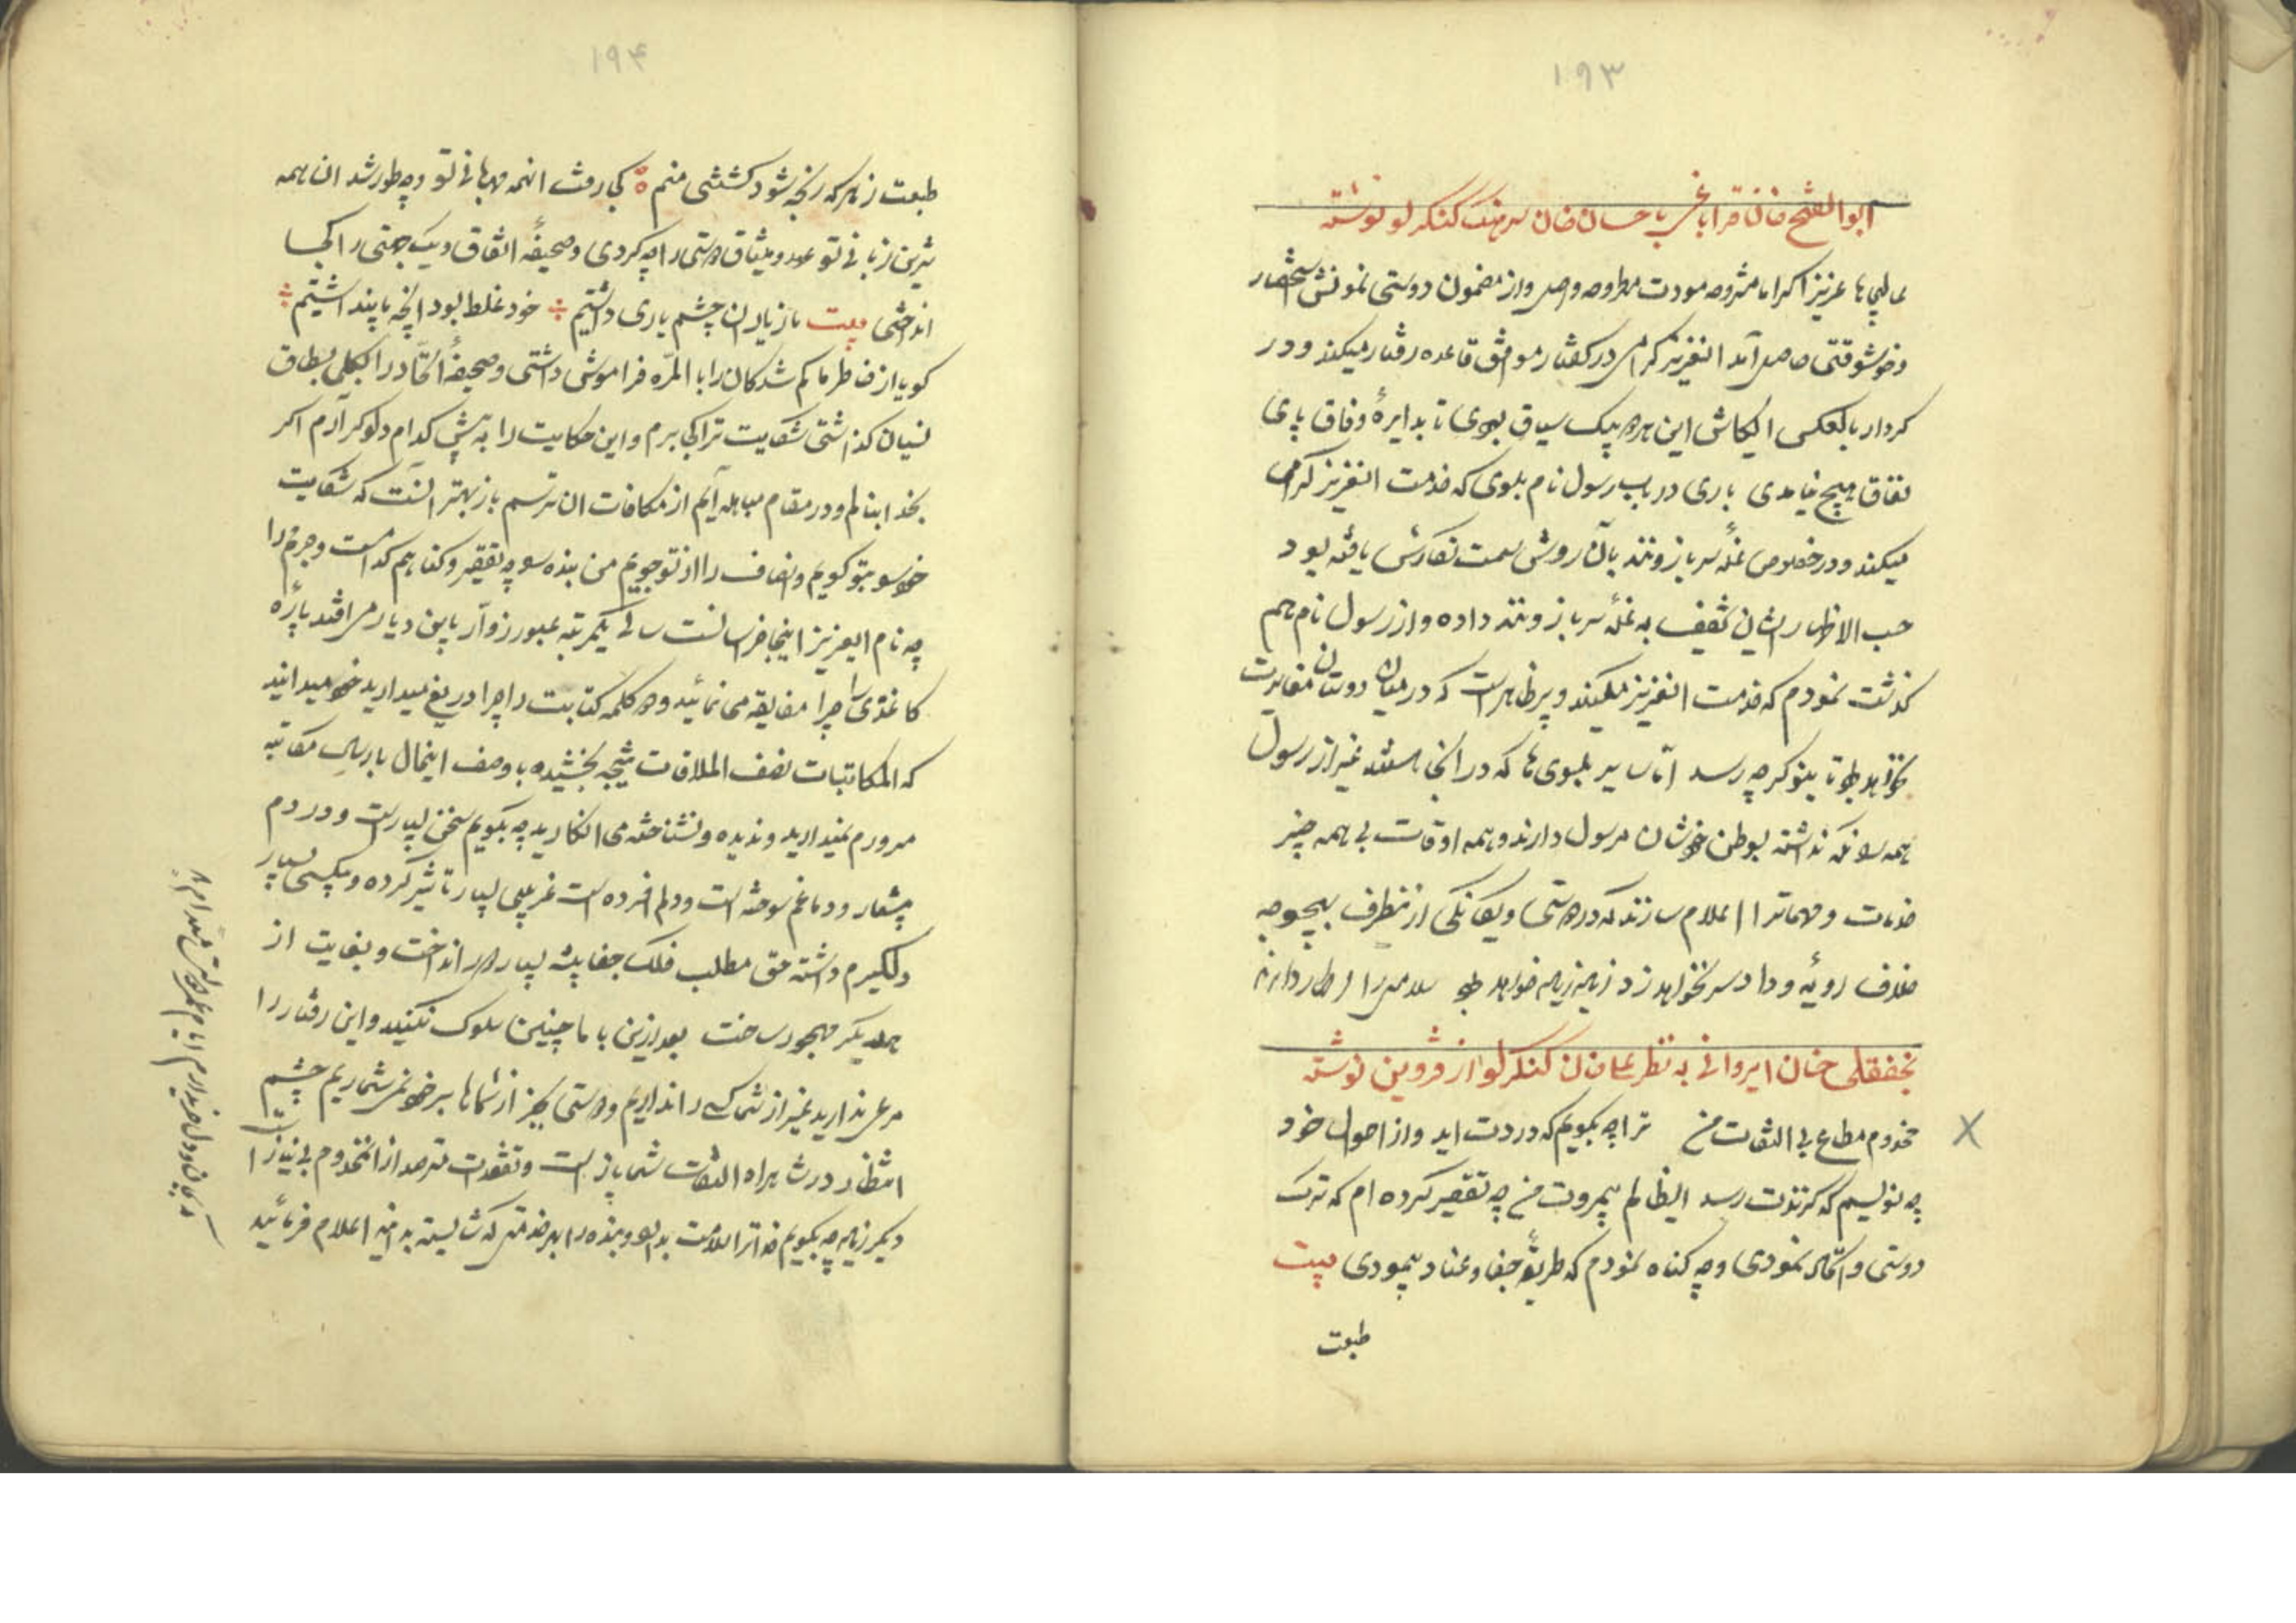 ۱۹۳
ابوالفتح خان قراباغی با حسان خان سرهنگ کنکرلو نوشته
عزیزا مودت مطروحه واصل و از مضمون دوستی نمونش استحضار
و خوشوقتی حاصل آمد انعزیز کرامی در کفتار موافق قاعده رفتار میکند و در
کردار بالعکس ایکاش این هر دو بیک سیاق بودی تا بدایرهٔ وفاق پای
نفاق هیچ نیامدی باری در باب رسول نام بلوی که خدمت انعزیز کرامی
میکند و در خصوص غلهٔ سرباز وند بآن روش سمت نکارش یافته بود
حسب الاظهار ایشان تخفیف به غلهٔ سرباز وند داده و از رسول نام هم
کذشت نمودم که خدمت انعزیز میکند و پر ظاهر است که در میان دوستان مغایرت
نخواهد بود تا بنوکر چه رسد اما سایر بلوی ها که در انجا هستند غیر از رسول
همه را نکه نداشته بوطن خودشان مرسول دارند و همه اوقات بی همه چیز
خدمات و مهماترا اعلام سازند که در دوستی و یکانکی از نطرف بهیچوجه
خلاف رویهٔ وداد سر نخواهد زد زیاده زیاده خواهد بود
نجفقلی خان ایروانی به نظر علیخان کنکرلو از قزوین نوشته
مخدوم مطاع بی التفات من ترا چه بکویم که دردت اید و از احوال خود
چه نویسم که کزندت رسد ایظالم بیمروت من چه تقصیر کرده ام که ترک
دوستی و اتحاد نمودی و چه کناه نمودم که طریقهٔ جفا و عناد پیمودی بیت
طبعت
۱۹۴
طبعت ز هر که رنجه شود کشتنی منم کجا رفت انهمه مهربانی تو و چه طور شد ان همه
شیرین زبانی تو عهد و میثاق دوستی را چه کردی و صحیفهٔ اتفاق و یک جهتی را کجا
انداختی بیت ما ز یاران چشم یاری داشتیم خود غلط بود انچه ما پنداشتیم
کویا از خاطر ما کم شدکان را بالمرّه فراموش داشتی و صحیفهٔ اتحاد را بالکلی بطاق
نسیان کذاشتی شکایت ترا کجا برم و این حکایت را به پیش کدام دلو کر آرم اکر
بخدا بنالم و در مقام مباهله آیم از مکافات ان ترسم باز بهتر آنست که شکایت
خود را بتو کویم و انصاف را از تو جویم من بنده را چه تقصیر و کناهم کدامست و جرم را
چه نام ایعزیز اینجا خراسانست سالی یکمرتبه عبور زوّار باین دیار می افتد پارهٔ
کاغذی را چرا مضایقه می نمائید و دو کلمه کتابت را چرا دریغ میدارید خود میدانید
که المکاتبات نصف الملاقات نتیجه بخشیده با وصف اینحال بارسال مکاتبه
مسرورم نمیدارید و ندیده و نشناخته می انکارید چه بکویم سخن بسیار است و دردم
بیشمار و دماغم سوخته است و دلم افسرده است غریبی بسیار تاثیر کرده و بیکسی بسیار
دلکیرم داشته حق مطلب فلک جفا پیشه بسیار دور انداخت و بغایت از
همدیکر مهجور ساخت بعد ازین با ما چنین سلوک نکنید و این رفتار را
مرعی ندارید غیر از شما کسی را نداریم و دوستی بجز از شماها بر خود نمی شماریم چشم
انتظار در شاهراه التفات شما باز است و تفقدات مترصد از انمخدوم بی نیاز است
دیکر زیاده چه بکویم خدا ترا سلامت بدارد و بنده را بهر خدمتی که شایسته بدانید اعلام فرمائید